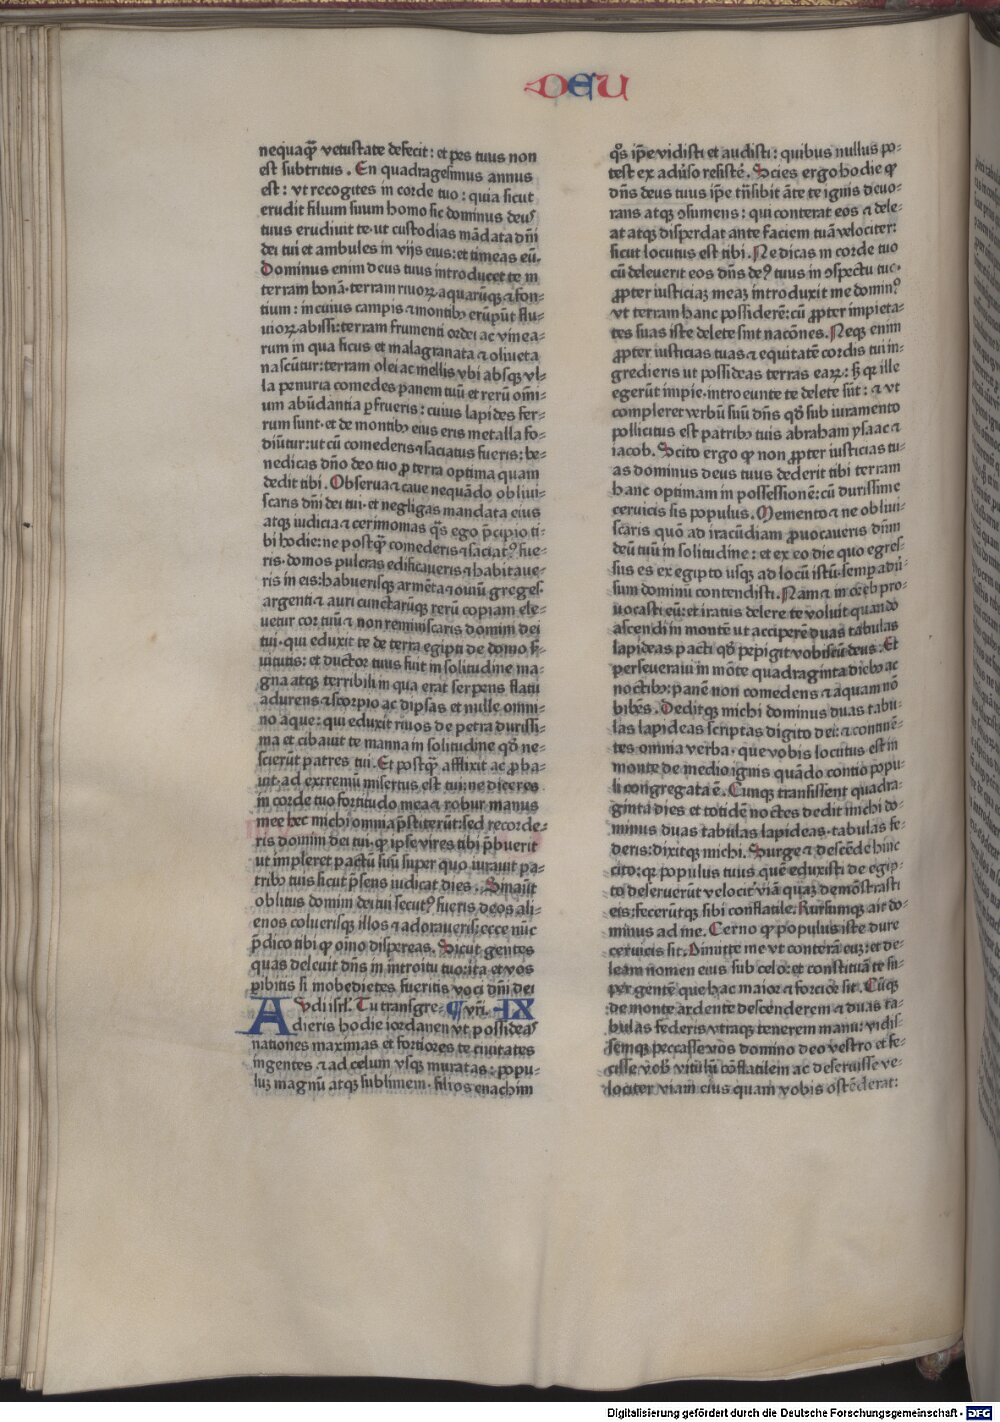 DEU
nequaqȝ vetustate defecit: et pes tuus non
est subtritus. En quadragesimus annus
est: vt recogites in corde tuo: quia sicut
erudit filium suum homo sic dominus deus
tuus erudiuit te· ut custodias mādata dn̄i
dei tui et ambules in vijs eius: et timeas eū.
Dominus enim deus tuus introducet te in
terram bonā· terram riuoꝝ aquarūqꝫ ⁊ fon-
tium: in cuius campis ⁊ montibꝫ erūpūt flu-
uioꝝ abissi: terram frumenti ordei ac vinea-
rum in qua ficus et malagranata ⁊ oliueta
nascūtur: terram olei ac mellis vbi absqꝫ vl-
la penuria comedes panem tuū et rerū om̄i-
um abūdantia ꝑfrueris: cuius lapides fer-
rum sunt· et de montibꝫ eius eris metalla fo-
diūtur: ut cū comederis ⁊ saciatus fueris: be-
nedicas dn̄o deo tuo ꝓ terra optima quam
dedit tibi. Obserua ⁊ caue nequādo obliui-
scaris dn̄i dei tui· et negligas mandata eius
atqꝫ iudicia ⁊ cerimonias q̄s ego p̄cipio ti-
bi hodie: ne postqȝ comederis ⁊ saciatꝰ fue-
ris· domos pulcras edificaueris ⁊ habitaue-
ris in eis: habuerisqꝫ armēta ⁊ ouiū greges·
argenti ⁊ auri cunctarūqꝫ rerū copiam ele-
uetur cor tuū ⁊ non reminiscaris domini dei
tui· qui eduxit te de terra egipti de domo s̄-
uitutis: et ductor tuus fuit in solitudine ma-
gna atqꝫ terribili in qua erat serpens flatu
adurens ⁊ scorpio ac dipsas et nulle omni-
no aque: qui eduxit riuos de petra durissi-
ma et cibauit te manna in solitudine qd̄ ne-
scierūt patres tui. Et postqȝ afflixit ac ꝓba-
uit· ad extremū misertus est tui: ne diceres
in corde tuo fortitudo mea ⁊ robur manus
mee hec michi omnia p̄stiterūt: sed recorde-
ris domini dei tui· ꝙ ipse vires tibi p̄buerit
ut impleret pactū suū super quo iurauit pa-
tribꝫ tuis sicut p̄sens iudicat dies. Sin aūt
oblitus domini dei tui secutꝰ fueris deos ali-
enos coluerisqꝫ illos ⁊ adoraueris: ecce nūc
p̄dico tibi ꝙ oīno dispereas. Sicut gentes
quas deleuit dn̄s in introitu tuo· ita et vos
ꝑibitis si inobedientes fueritis voci dn̄i dei
Audi isrl̄. Tu transgre- ¶ vr̄i. IX
dieris hodie iordanen vt possideas
nationes maximas et fortiores te· ciuitates
ingentes ⁊ ad celum vsqꝫ muratas: popu-
luȝ magnū atqꝫ sublimem· filios enachim
q̄s ip̄e vidisti et audisti: quibus nullus po-
test ex adūso resistē. Scies ergo hodie ꝙ
dn̄s deus tuus ip̄e trn̄sibit āte te ignis deuo-
rans atqꝫ ꝯsumens: qui conterat eos ⁊ dele-
at atqꝫ disperdat ante faciem tuā velociter:
sicut locutus est tibi. Ne dicas in corde tuo
cū deleuerit eos dn̄s deꝰ tuus in ꝯspectu tuo·
ꝓpter iusticiaȝ meaȝ introduxit me dominꝰ
vt terram hanc possiderē: cū ꝓpter impieta-
tes suas iste delete sint nacōnes. Neqꝫ enim
ꝓpter iusticias tuas ⁊ equitatē cordis tui in-
gredieris ut possideas terras eaꝝ: sꝫ qꝛ ille
egerūt impie· introeunte te delete sūt: ⁊ vt
compleret verbū suū dn̄s qd̄ sub iuramento
pollicitus est patribꝫ tuis abraham ysaac ⁊
iacob. Scito ergo ꝙ non ꝓpter iusticias tu-
as dominus deus tuus dederit tibi terram
hanc optimam in possessionē: cū durissime
ceruicis sis populus. Memento ⁊ ne obliui-
scaris quō ad iracūdiam ꝓuocaueris dn̄m
deū tuū in solitudine: et ex eo die quo egres-
sus es ex egipto usqꝫ ad locū istū· semꝑ adū-
sum dominū contendisti. Nam ⁊ in oreb pro-
uocasti eū: et iratus delere te voluit quando
ascendi in montē ut acciperē duas tabulas
lapideas pacti qd̄ pepigit vobiscū deus. Et
perseueraui in mōte quadraginta diebꝫ ac
noctibꝫ: panē non comedens ⁊ aquam nō
bibēs. Deditqꝫ michi dominus duas tabu-
las lapideas scriptas digito dei: ⁊ continē-
tes omnia verba· que vobis locutus est in
monte de medio ignis quādo contio popu-
li congregata ē. Cumqꝫ transissent quadra-
ginta dies et totidē noctes dedit michi do-
minus duas tabulas lapideas· tabulas fe-
deris: dixitqꝫ michi. Surge ⁊ descēde hinc
cito: qꝛ populus tuus quē eduxisti de egip-
to deseruerūt velocit̄ viā quaȝ demōstrasti
eis: fecerūtqꝫ sibi conflatile. Rursumqꝫ ait do-
minus ad me. Cerno ꝙ populus iste dure
ceruicis sit. Dimitte me vt conterā euȝ: et de-
leam nomen eius sub celo: et constituā te su-
per gentē que hac maior ⁊ forcior sit. Cūqꝫ
de monte ardente descenderem ⁊ duas ta-
bulas federis vtraqꝫ tenerem manu: vidis-
semqꝫ peccasse vos domino deo vestro et fe-
cisse vob̄ vitulū cōflatilem ac deseruisse ve-
lociter viam eius quam vobis ostēderat:
Digitalisierung gefördert durch die Deutsche Forschungsgemeinschaft - DFG